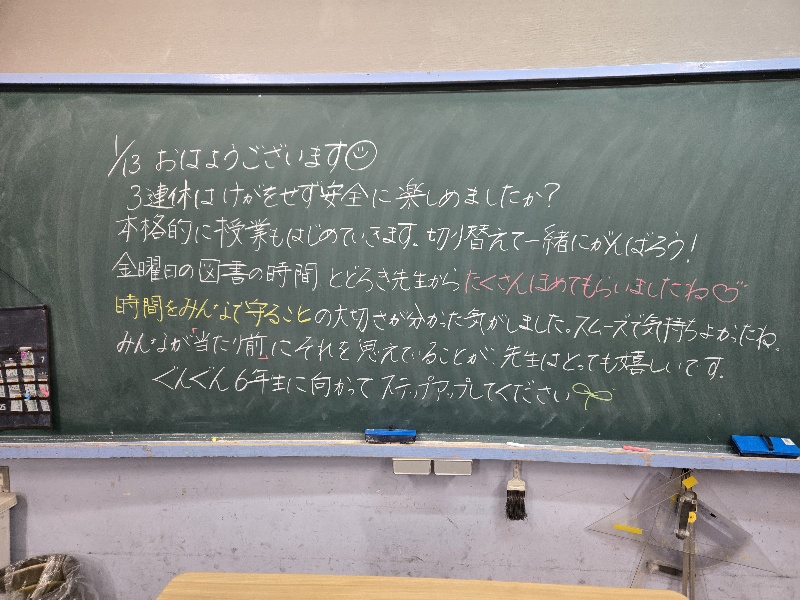 1/13 おはようございます☺
3連休は けがをせず安全に 楽しめましたか？
本格的に授業もはじめていきます。切り替えて一緒にがんばろう！
金曜日の図書の時間 とどろき先生から たくさんほめてもらいましたね♡
時間をみんなで守ることの大切さが分かった気がしました。スムーズで気持ちよかったね。
みんなが「当たり前」にそれを思えていることが、先生はとっても嬉しいです。
ぐんぐん 6年生に向かって ステップアップしてください